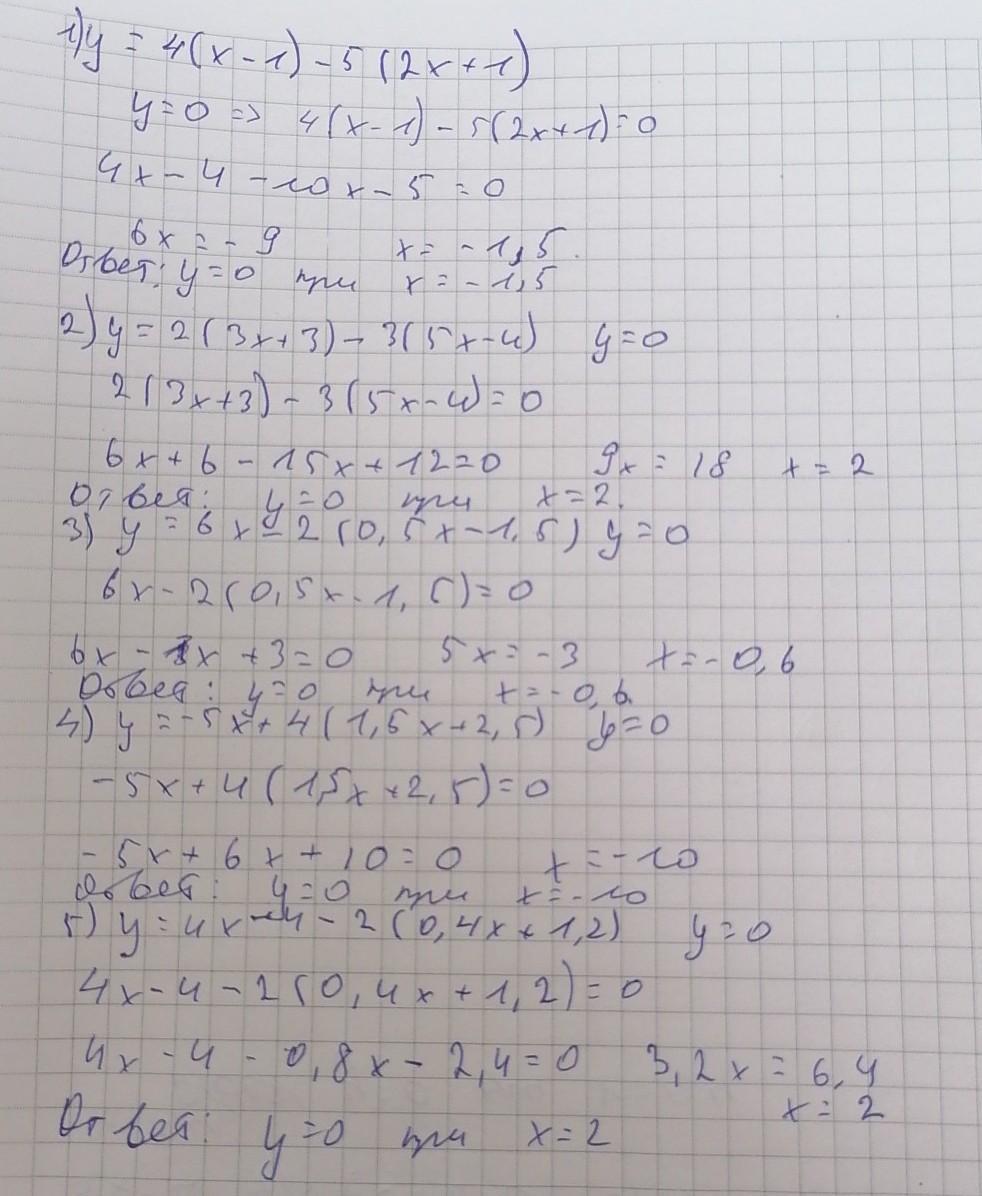 1) y = 4(x-1) - 5(2x+1)
y=0 => 4(x-1) - 5(2x+1)=0
4x - 4 - 10x - 5 = 0
6x = - 9 x = - 1,5.
Ответ: y=0 при x = - 1,5
2) y = 2(3x+3) - 3(5x-4) y=0
2(3x+3) - 3(5x-4)=0
6x+6 - 15x+12=0 9x = 18 x = 2
Ответ: y=0 при x=2.
3) y = 6x - 2(0,5x-1,5) y=0
6x - 2(0,5x-1,5)=0
6x - 1x +3=0 5x = -3 x=-0,6
Ответ: y=0 при x=-0,6.
4) y = -5x + 4(1,5x+2,5) y=0
-5x+4(1,5x+2,5)=0
-5x+6x+10=0 x=-10
Ответ: y=0 при x=-10
5) y=4x-4-2(0,4x+1,2) y=0
4x-4-2(0,4x+1,2)=0
4x-4-0,8x-2,4=0 3,2x=6,4
x=2
Ответ: y=0 при x=2